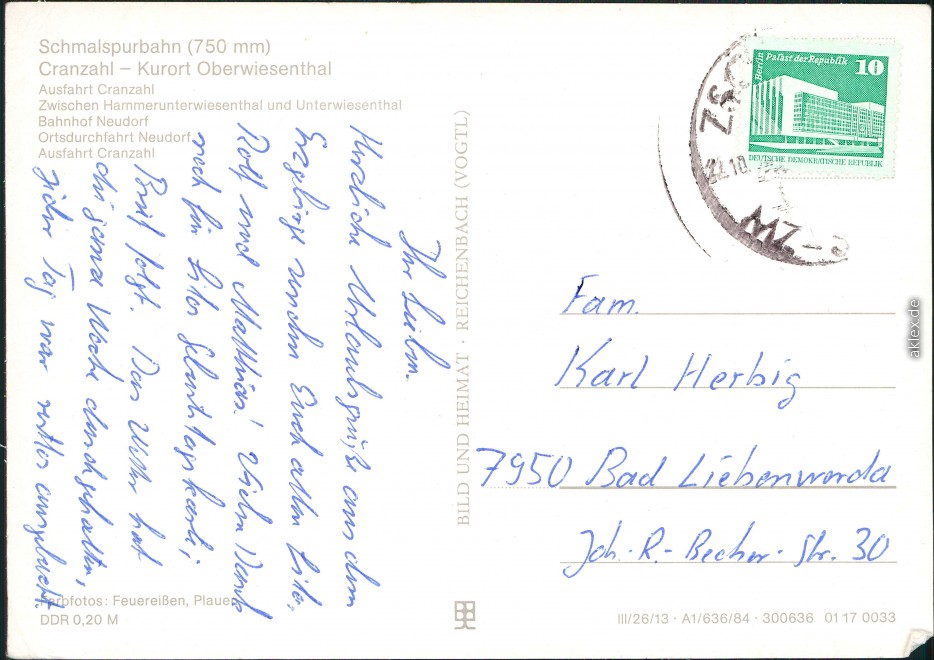 Schmalspurbahn (750 mm)
Cranzahl – Kurort Oberwiesenthal
Ausfahrt Cranzahl
Zwischen Hammerunterwiesenthal und Unterwiesenthal
Bahnhof Neudorf
Ortsdurchfahrt Neudorf
Ausfahrt Cranzahl
Ihr Lieben.
Herzliche Urlaubsgrüße aus dem
Erzgebirge senden Euch allen
Rolf und Matthias! Vielen Dank
noch für
Brief folgt. Das Wetter hat
die ganze Woche durchgehalten,
jeder Tag war restlos ausgebucht.
Farbfotos: Feuereißen, Plauen
DDR 0,20 M
BILD UND HEIMAT · REICHENBACH (VOGTL)
Berlin Palast der Republik
10
DEUTSCHE DEMOKRATISCHE REPUBLIK
22.10.
Fam.
Karl Herbig
7950 Bad Liebenwerda
Joh.-R.-Becher-Str. 30
III/26/13 · A1/636/84 · 300636 01 17 0033
aklex.de